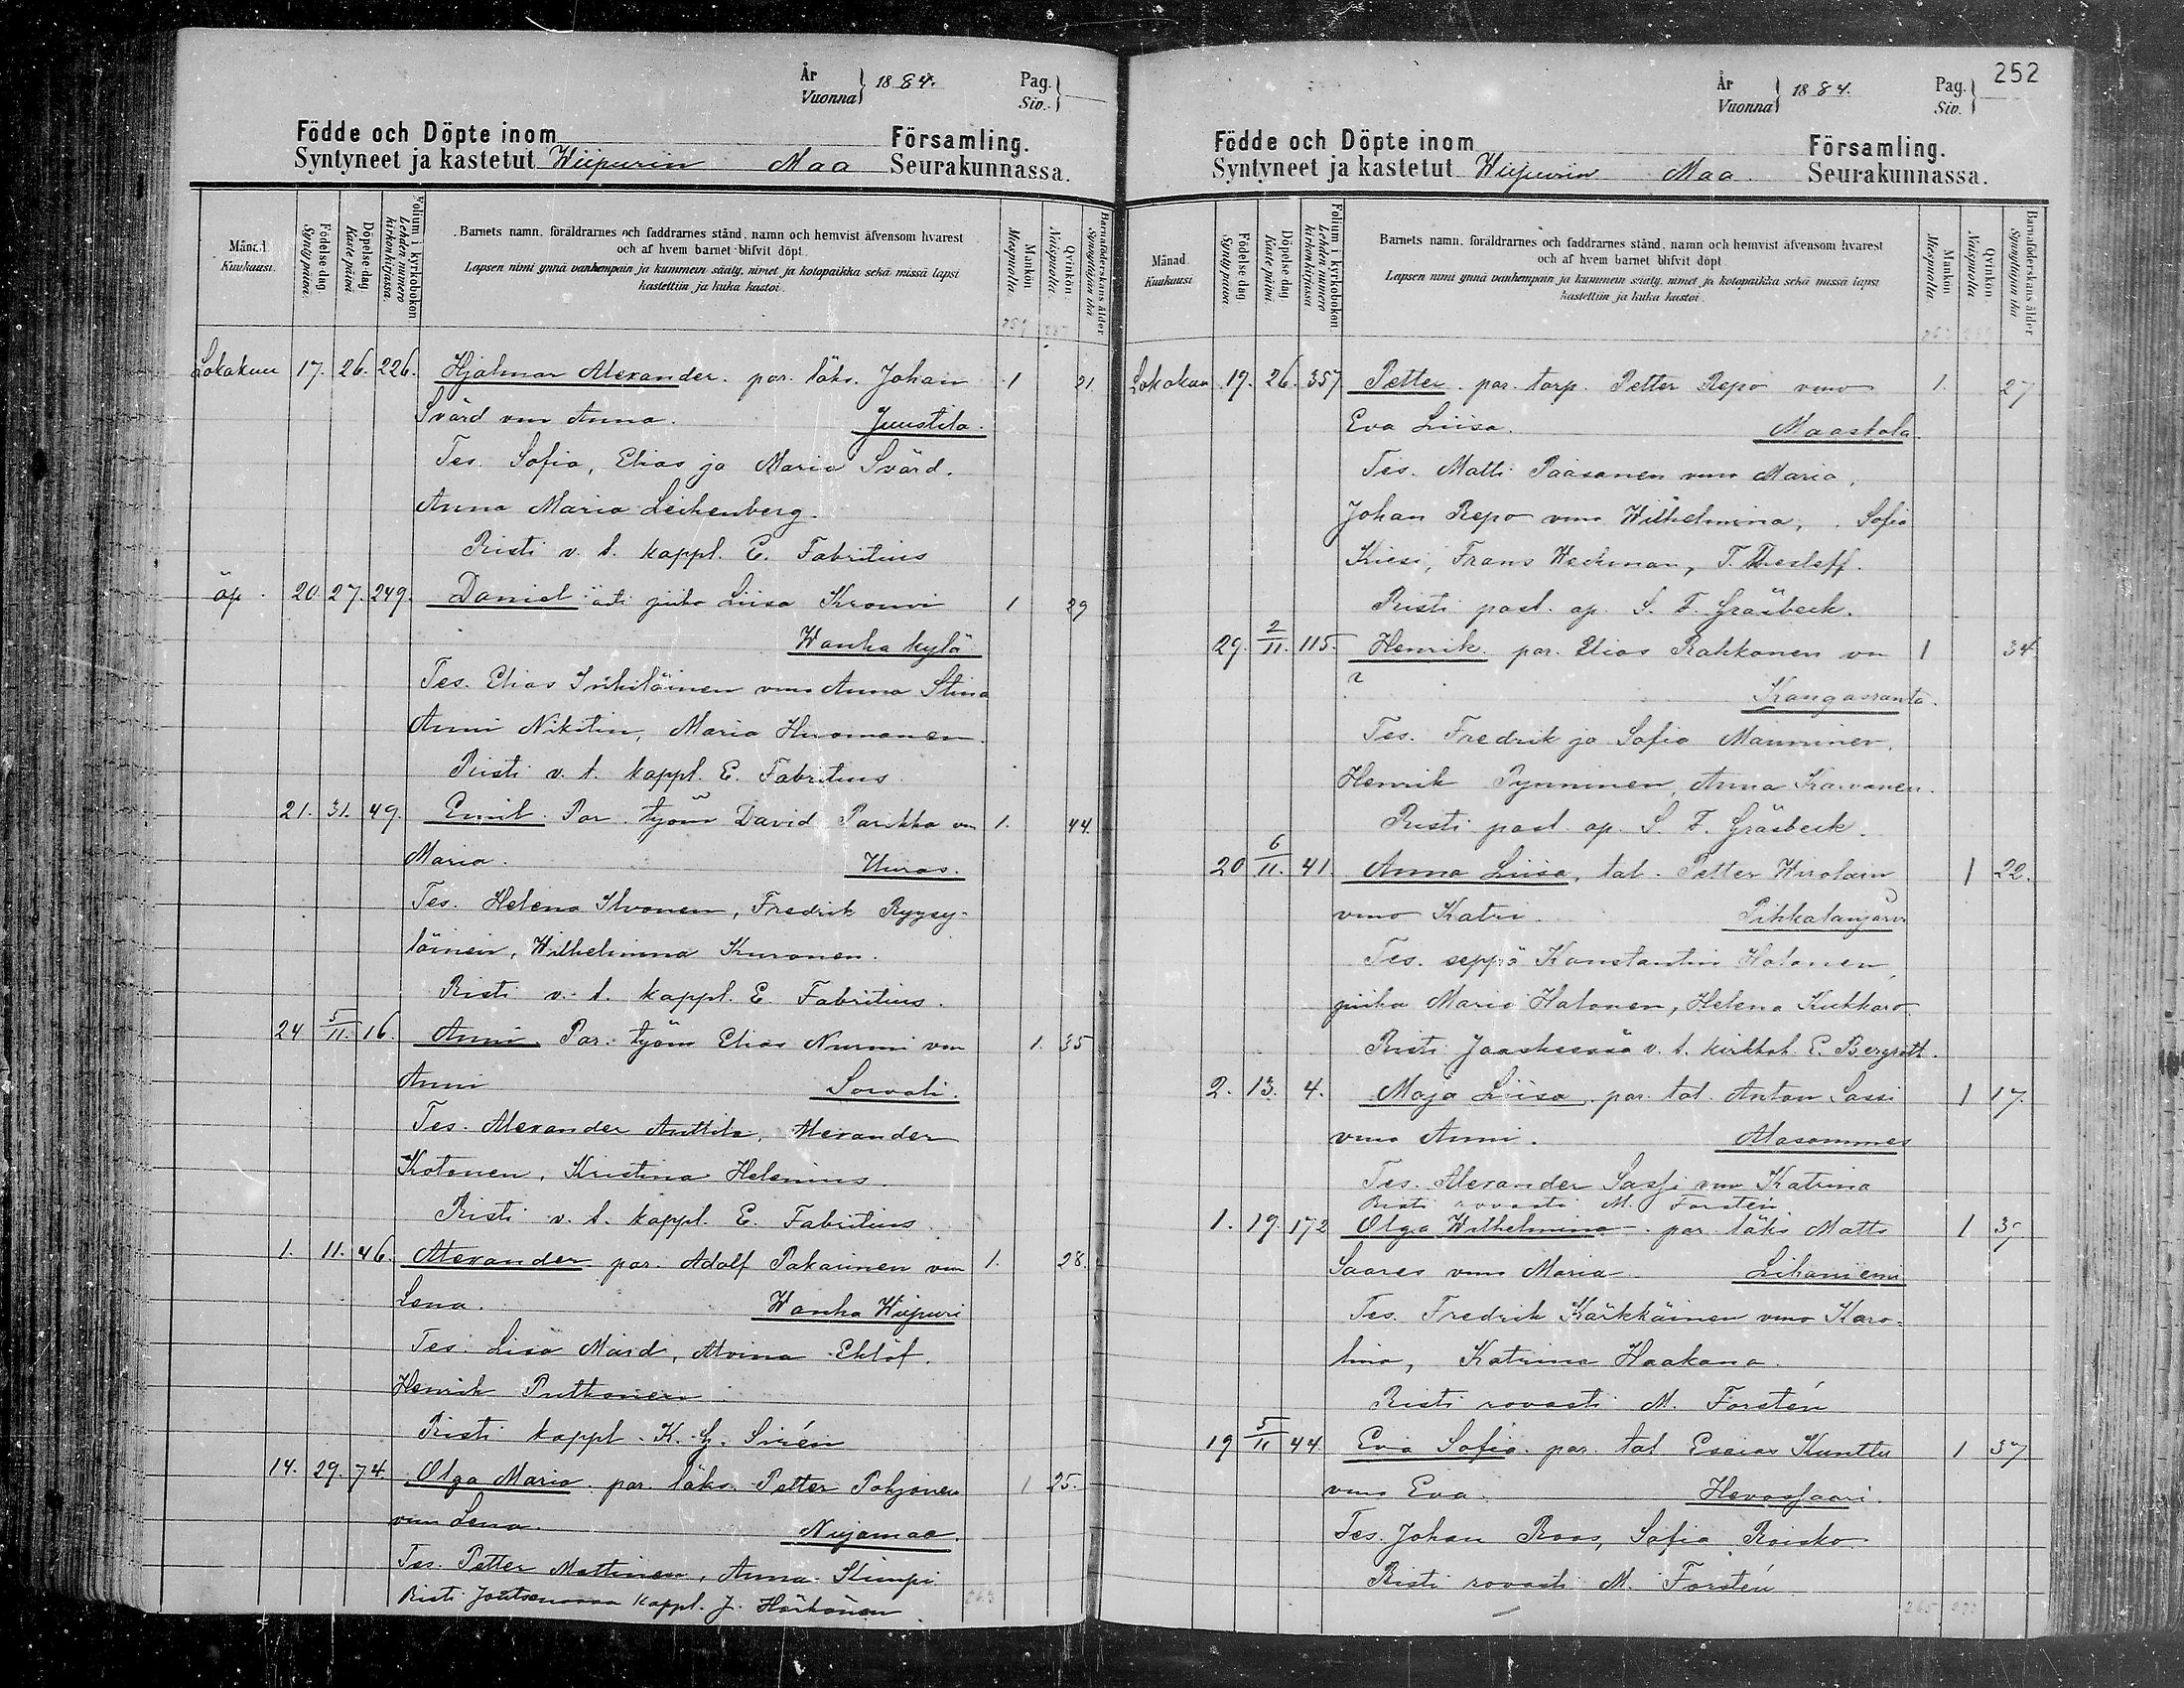 År
Vuonna } 1884. Pag.
Siv.
Födde och Döpte inom Församling.
Syntyneet ja kastetut Wiipurin Maa Seurakunnassa.
Månad.
Kuukausi.
Födelse dag.
Synty päivä.
Döpelse dag
Kaste päivä
Folium i kyrkoboken.
Lehden numero kirkonkirjassa.
Barnets namn, föräldrarnes och faddrarnes stånd, namn och hemvist äfvensom hvarest
och af hvem barnet blifvit döpt.
Lapsen nimi ynnä vanhempain ja kummein sääty, nimet ja kotopaikka sekä missä lapsi
kastettiin ja kuka kastoi.
Mankön.
Miespuolia.
Qvinkön.
Naispuolia.
Barnaföderskans ålder
Synnyttäjän ikä
Lokakuu 17. 26. 226. Hjalmar Alexander. par. läks. Johan 1 21.
Svärd vmo Anna. Juustila.
Tes. Sofia, Elias ja Maria Svärd.
Anna Maria Leihenberg.
Risti v. t. kappl. E. Fabritius
äp. 20. 27. 249. Daniel äiti piika Liisa Kromi 1 29
Wanha kylä
Tes. Elias Inkiläinen vmo Anna Stina
Anni Nikitin, Maria Huomanen.
Risti v. t. kappl. E. Fabritius
21. 31. 49. Emil. Par. työm David Parikka vm 1. 44.
Maria. Uuras.
Tes. Helena Ilvonen, Fredrik Ryysy-
läinen, Wilhelmina Kuronen.
Risti v. t. kappl. E. Fabritius.
24 5/11. 16. Anni. Par. työm Elias Nurmi vmo 1. 35
Anni Sorvali.
Tes. Alexander Anttila, Alexander
Kotonen, Kristina Helenius.
Risti v. t. kappl. E. Fabritius
1. 11. 46. Alexander par. Adolf Pakarinen vmo 1. 28.
Lena. Wanha Wiipuri
Tes. Lisa Maid, Alvina Eklöf.
Henrik Putkonen
Risti kappl. K. G. Sirén
14. 29. 74. Olga Maria. par. läks. Petter Pohjonen 1 25.
vmo Lena. Nuijamaa.
Tes. Petter Mattinen, Anna Kimpi
Risti Joutsenossa kappl. J. Härkönen.
252
År
Vuonna } 1884. Pag.
Siv.
Födde och Döpte inom Församling.
Syntyneet ja kastetut Wiipurin Maa Seurakunnassa.
Månad.
Kuukausi
Födelse dag
Synty päivä.
Döpelse dag
Kaste päivä.
Folium i kyrkoboken.
Lehden numero kirkonkirjassa.
Barnets namn, föräldrarnes och faddrarnes stånd, namn och hemvist äfvensom hvarest
och af hvem barnet blifvit döpt
Lapsen nimi ynnä vanhempain ja kummein sääty, nimet ja kotopaikka sekä missä lapsi
kastettiin ja kuka kastoi.
Mankön
Miespuolia
Qvinkön
Naispuolia
Barnaföderskans ålder
Synnyttäjän ikä
Lokakuu 17. 26. 357 Petter. par. torp. Petter Repo vmo 1. 27
Eva Liisa. Maaskola.
Tes. Matti Paasonen vmo Maria,
Johan Repo vmo Wilhelmina, Sofia
Kiesi, Frans Weckman, T. Thesleff.
Risti past. ap. S. F. Gräsbeck.
29. 2/11. 115. Henrik. par. Elias Rahkonen vm 1 34
? Kangasranta.
Tes. Fredrik ja Sofia Manninen,
Henrik Pynninen, Anna Karvanen.
Risti past. ap. S. F. Gräsbeck.
20 6/11. 41. Anna Liisa, tal. Petter Wirolain 1 22.
vmo Katri. Pihkalanjärvi
Tes. seppä Konstantin Halonen,
piika Maria Halonen, Helena Kukkaro.
Risti Jääskessä v. t. kirkkoh. E. Bergrott.
2. 13. 4. Maja Liisa. par. tal. Anton Sassi 1 17.
vmo Anni. Alasommee
Tes. Alexander Sassi vmo Katrina
Risti rovasti M. Forstén
1. 19. 172 Olga Wilhelmina. par. läks Matts 1 39
Saares vmo Maria. Lihaniemi
Tes. Fredrik Kärkkäinen vmo Karo-
lina, Katrina Haakana.
Risti rovasti M. Forstén
19 5/11 44 Eva Sofia. par. tal Esaias Kunttu 1 37
vmo Eva. Hevossaari.
Tes. Johan Roos, Sofia Roisko
Risti rovasti M. Forstén